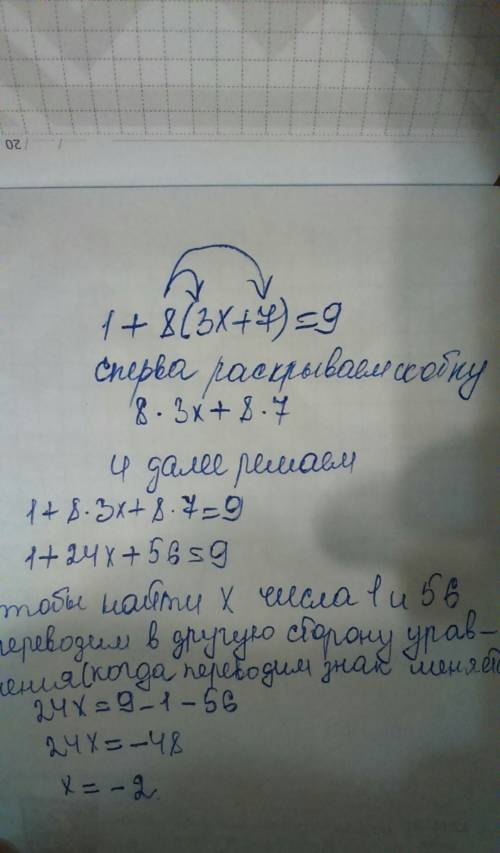 / /20
1 + 8(3x+7)=9
сперва раскрываем скобку
8 · 3x + 8 · 7
и далее решаем
1+8·3x+8·7=9
1+24x+56=9
чтобы найти x числа 1 и 56
переводим в другую сторону урав-
нения(когда переводим знак меняет
24x=9-1-56
24x=-48
x=-2